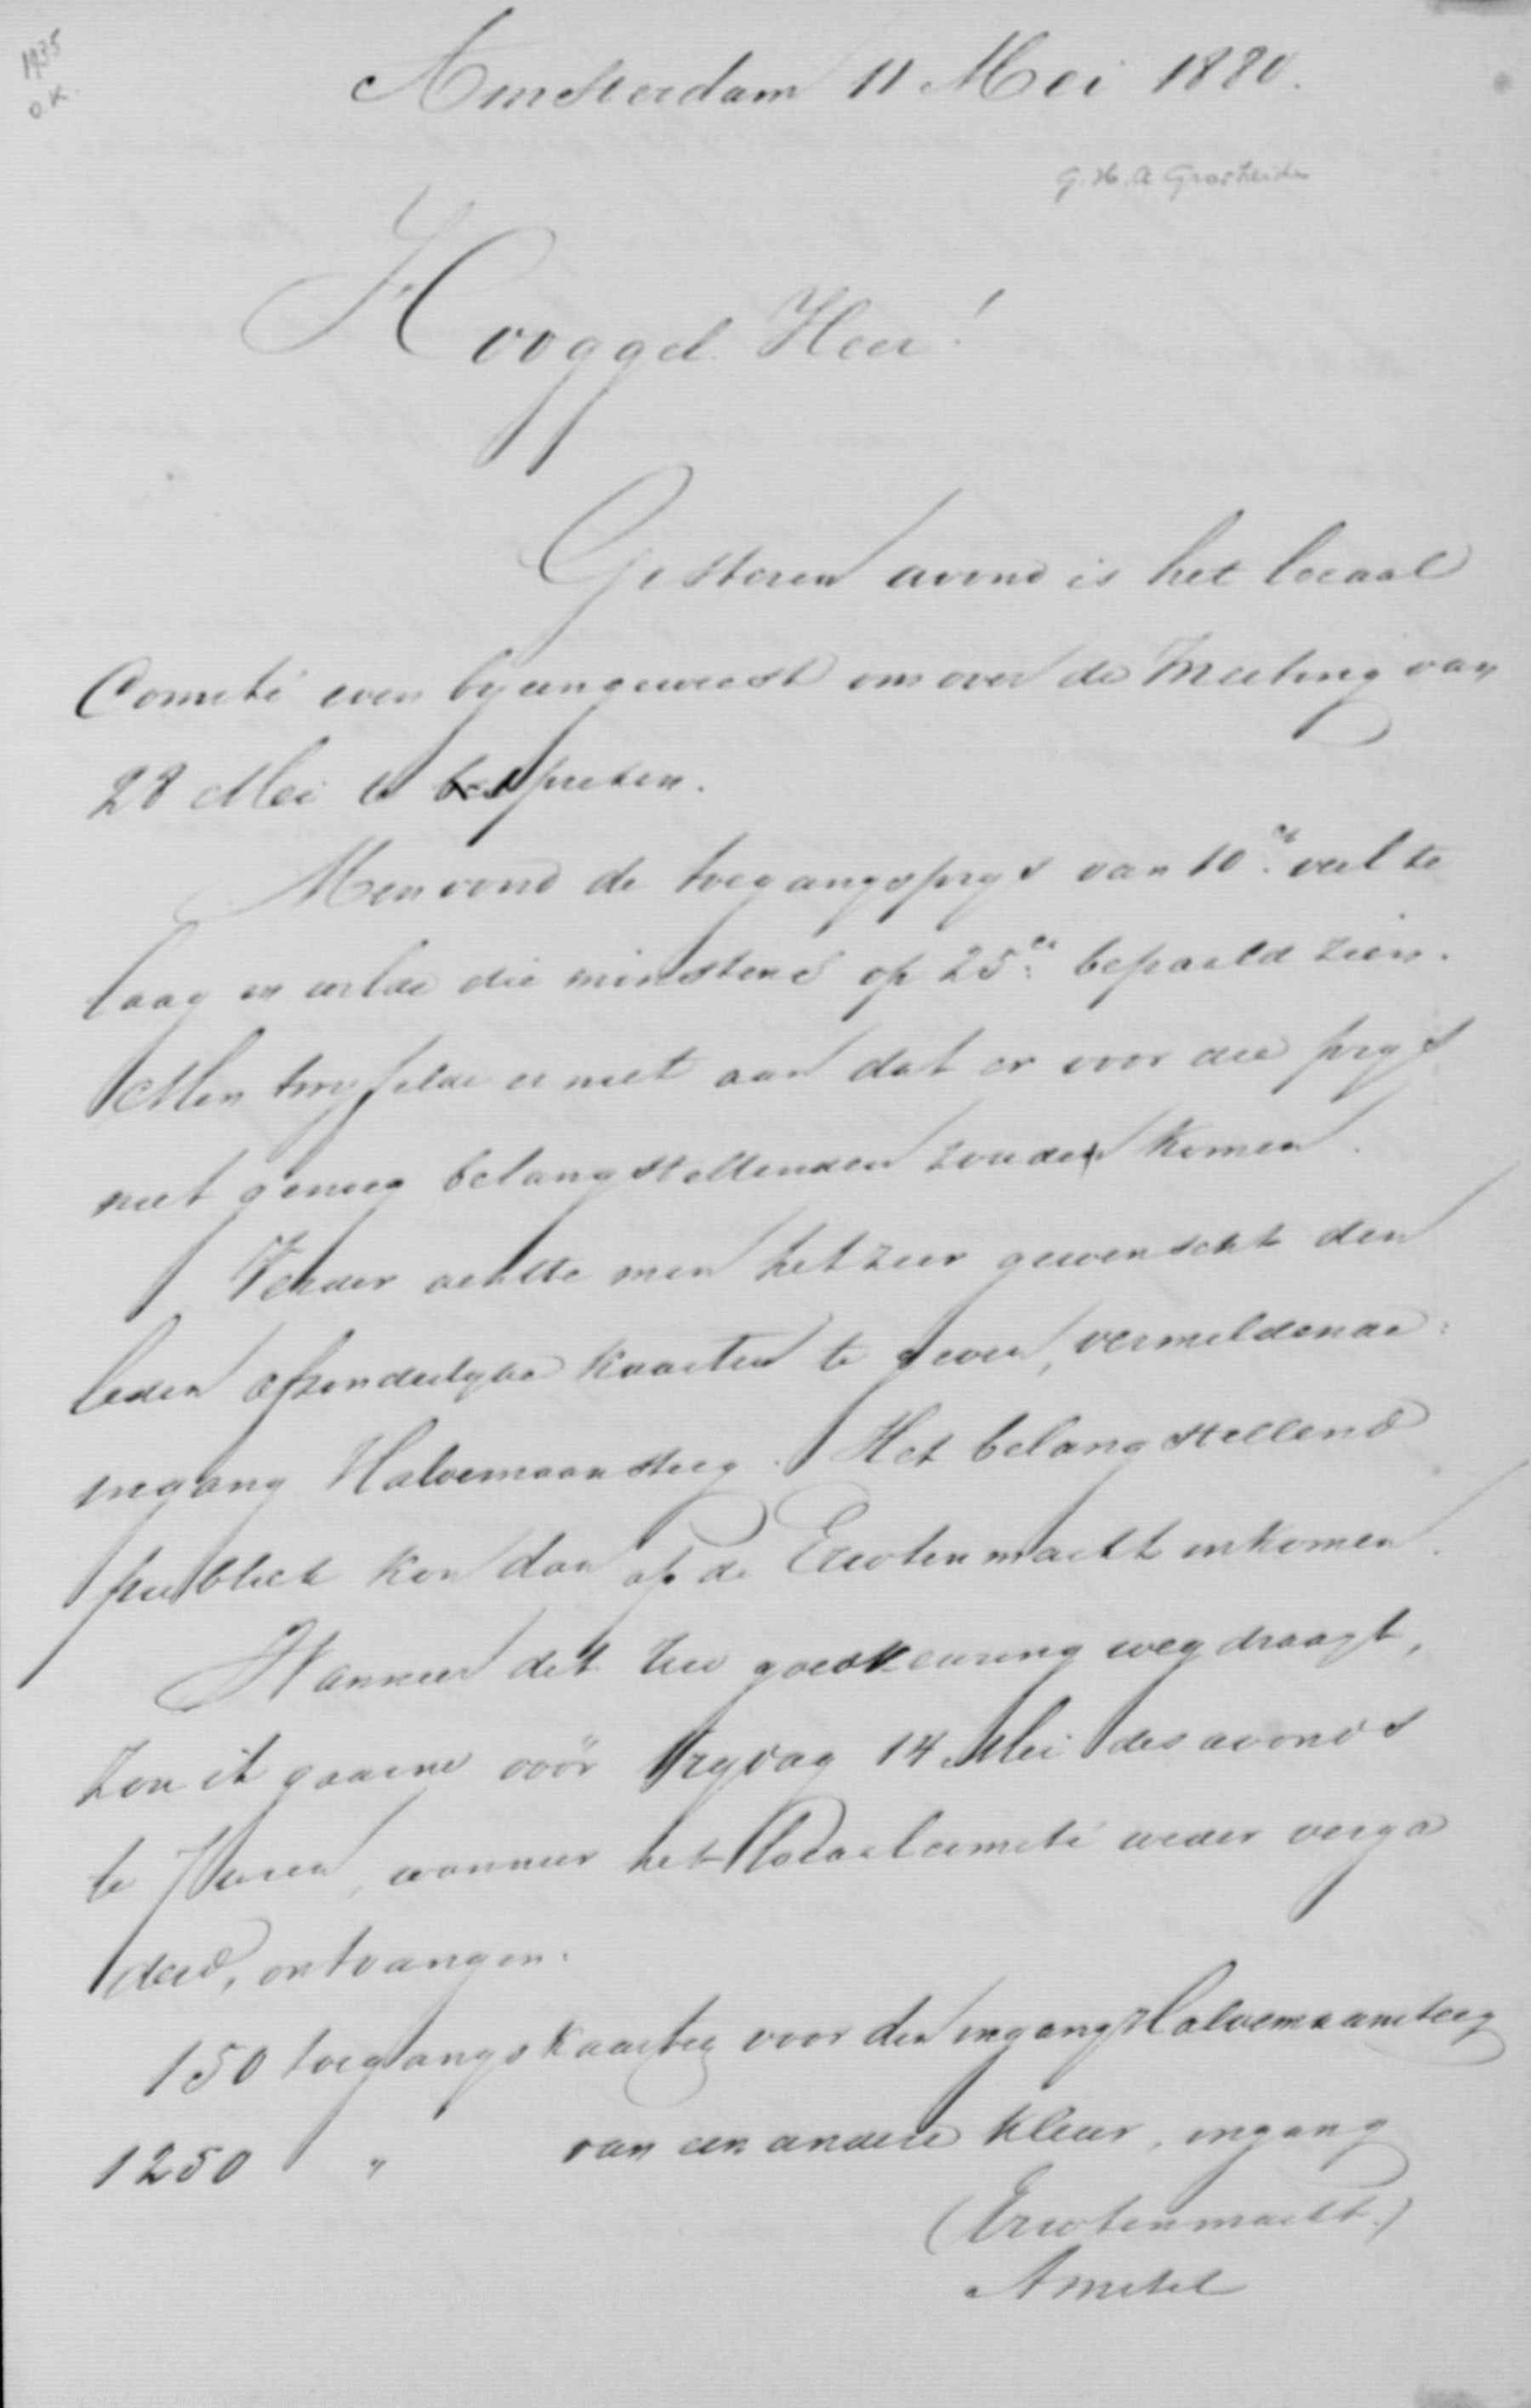 1935
O.K.
Amsterdam 11 Mei 1880.
G. H. A. Grosheide
Hooggel. Heer!
Gisteren avond is het locaal
Comité even bijeengeweest om over de Meeting van
28 Mei te spreken.
Men vond de toegangsprys van 10 ct. veel te
laag en wilde die minstens op 25 ct. bepaald zien.
Men twyfelde er niet aan dat er voor die prys
niet genoeg belangstellenden zouden komen.
Verder achtte men het zeer gewenscht den
leden afzonderlyke kaarten te geven, vermeldende:
ingang Halvemaansteeg. Het belangstellend
publiek kon dan op de Erwtenmarkt inkomen.
Wanneer dit Uw goedkeuring wegdraagt,
zou ik gaarne vóór Vrydag 14 Mei des avonds
te 7 uren, wanneer het locaalcomité weder verga
derd, ontvangen:
150 toegangskaarten voor den ingang Halvemaansteeg
1250 " van een andere kleur, ingang
(Erwtenmarkt.)
Amstel